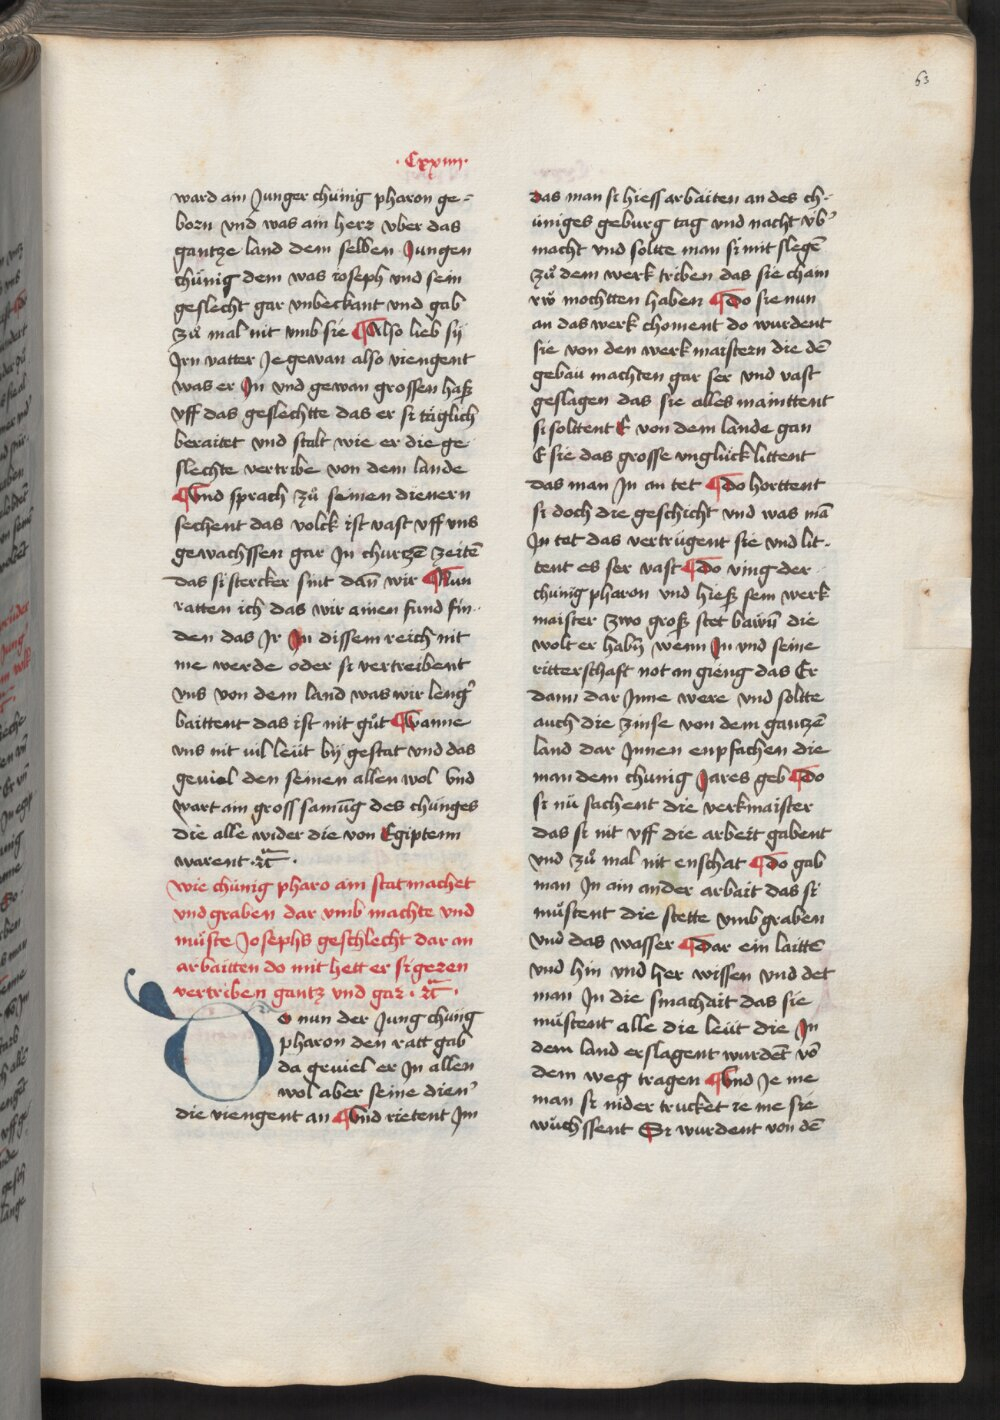 63
·Cxxiiii·
ward ain Junger chünig pharon ge-
born vnd was ain herr vber das
gantze land dem selben Jungen
chünig dem was ioseph vnd sein
geslecht gar vnbeckant vnd gab
zů mal nit vmb sie ¶ Also lieb sÿ
Jrn vatter Je gewan also viengent
was er Jn vnd gewan grossen haß
vff das geslechtte das er si täglich
beraitet vnd stalt wie er die ge
slechte vertribe von dem lande
¶ Vnd sprach zů seinen dienern
sechent das volck ist vast vff vns
gewachssen gar Jn churtzē zeitē
das si stercker sint dan̄ wir ¶ Nun
ratten ich das wir ainen fund fin-
den das Jr Jn dissem reich nit
me werde oder si vertreibent
vns von dem land was wir leng̕
baittent das ist nit gůt ¶ Wanne
vns nit vil leüt bÿ gestat vnd das
geviel den seinen allen wol Vnd
wart ain gross samūg des chünges
die alle wider die von Egiptenn
warent ·rc̄·
wie chünig pharo ain stat machet
vnd graben dar vmb machte vnd
můste Josephs geschlecht dar an
arbaitten do mit hett er si geren
vertriben gantz vnd gar · rc̄ ·
Do nun der Jung chüng
pharon den ratt gab
da geviel er Jn allen
wol aber seine dien̕
die viengent an ¶ Vnd rietent Jm
das man si hiess arbaiten an des ch-
üniges geburg tag vnd nacht vb̕
macht vnd soltte man si mit slegē
zů dem werk triben das sie chain
rẘ mochtten haben ¶ Do sie nun
an das werk choment do wurdent
sie von den werk maistern die dē
gebau machten gar ser vnd vast
geslagen das sie alles mainttent
si solttent E von dem lande gan
E sie das grosse vnglück littent
das man Jn an tet ¶ Do horttent
si doch die geschicht vnd was mā
Jn tet das vertrugent sie vnd lit-
tent es ser vast ¶ Do ving der
chünig pharon vnd hieß sein werk
maister zwo groß stet bawn̄ die
wolt er habn̄ wenn Jn vnd seine
ritterschaft not an gieng das Er
dann dar Jnne were vnd soltte
auch die zinse von dem gantzē
land dar Jnnen enpfachen die
man dem chunig Jares geb ¶ Do
si nü sachent die verkmaister
das si nit vff die arbeit gabent
vnd zů mal nit enschat ¶ Do gab
man Jn ain ander arbait das si
můstent die stette vmb graben
vnd das wasser ¶ Dar ein laittē
vnd hin vnd her wissen vnd det
man Jn die smachait das sie
můstent alle die leüt die Jn
dem land erslagent wurdēt vō
dem weg tragen ¶ Vnd Je me
man si nider trucket ie me sie
wüchssent Si wurdent von dē